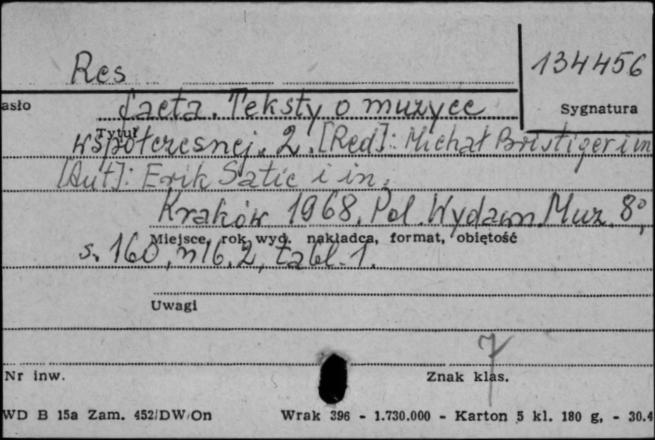 Res
134456
asło
facta. Teksty o muzyce
Sygnatura
Tytuł
współczesnej. 2. [Red]: Michał Bristiger i in
[Aut]: Erik Satie i in.
Kraków 1968. Pol. Wydawn. Muz. 8°,
Miejsce, rok wyd. nakładca, format, objętość
s. 160, nlb. 2, tabl. 1.
Uwagi
7
Nr inw.
Znak klas.
WD B 15a Zam. 452/DW/On Wrak 396 - 1.730.000 - Karton 5 kl. 180 g. - 30.4